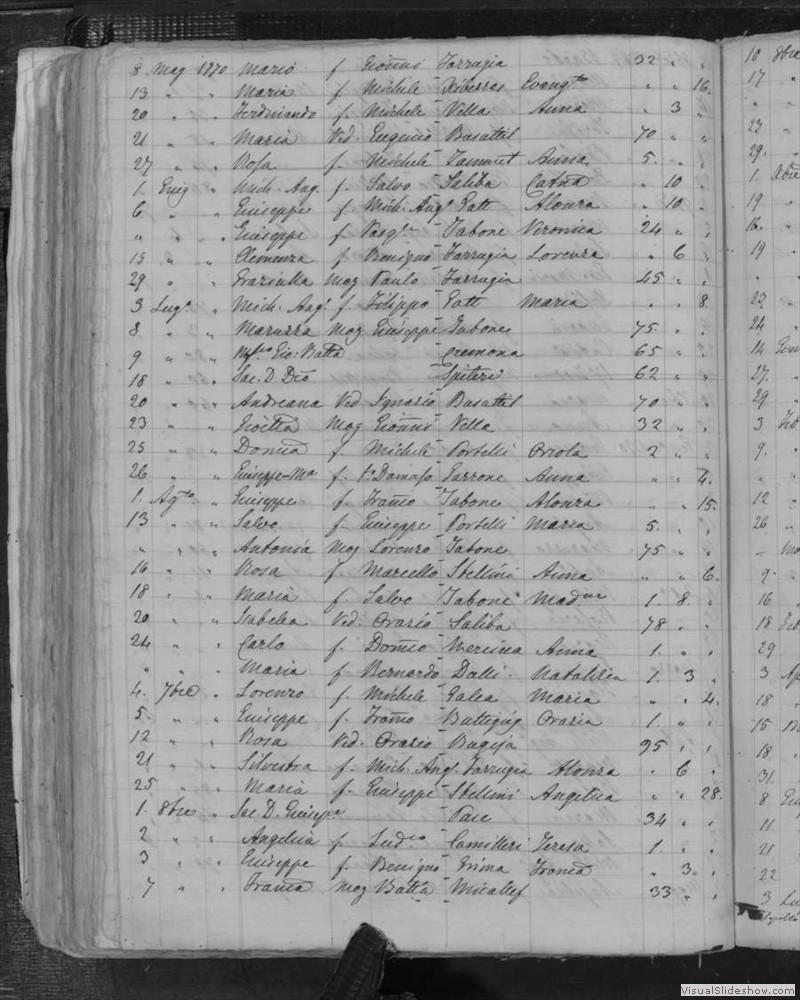 8 Mag 1870 Mario f Gioñni Farrugia 32 " "
13 " " Maria f Michele Xiberras Evang.ta " " 16.
20 " " Ferdinando f. Michele Vella Anna " 3 "
21 " " Maria Ved. Eugenio Busuttil 70 " "
27 " " Rosa f. Michele Tammut Anna 5. " "
1. Giug " Mich. Ang. f. Salvo Saliba Catña " 10 "
6 " " Giuseppe f. Mich. Ang.o Gatt Alonza " 10 "
" " " Giuseppe f Pasq.le Tabone Veronica 24 " "
15 " " Clemenza f. Benigno Farrugia Lorenza " 6 "
29 " " Graziulla mog Paulo Farrugia 45 " "
3 Lug.o " Mich. Ang.o f. Filippo Gatt Maria " " 8
8 " " Maruzza Mog Giuseppe Tabone 75. " "
9 " " Gio: Batta Cremona 65 " "
18 " " Sac. D. Dco Spiteri 62 " "
20 " " Andreana Ved Ignazio Busuttil 70 " "
23 " " Mog Gioñni Vella 32 " "
25 " " Donica f. Michele Portelli Orsola 2 " "
26 " " Giuseppe-Ma f. Damaso Farrone Anna " " 4.
1. Ag.to " Giuseppe f. Franco Tabone Alonza " " 15.
13 " " Salvo f Giuseppe Portelli Maria 5. " "
" " " Antonia Mog Lorenzo Tabone 75 " "
16 " " Rosa f. Marcello Stellini Anna " " 6.
18 " " Maria f. Salvo Tabone Mad.na 1. 8. "
20 " " Isabella Ved. Orazio Saliba 78 " "
24 " " Carlo f. Domco Mercieca Anna 1. " "
" " " Maria f Bernardo Dalli Natalizia 1. 3 "
4. 7bre " Lorenzo f. Michele Galea Maria " " 4.
5. " " Giuseppe f. Franco Buttigieg Grazia 1. " "
12 " " Rosa Ved. Orazio Bugeja 95 " "
21 " " Silvestra f. Mich. Ang.o Farrugia Alonza " 6 "
25. " " Maria f. Giuseppe Stellini Angelica " " 28.
1. 8bre " Sac D. Giuseppe Pace 34 " "
2 " " Angelica f Lud.co Camilleri Teresa 1. " "
3 " " Giuseppe f. Benigno Grima Franca " 3 "
7 " " Franca Mog Batta Micallef 33 " "
10 8bre
17
"
23
29.
1.
19
16.
19
"
23
24
14
27.
29
3
9.
"
12
26
9
16
18
29
3
18
15
18.
31.
8
11
21
22
3
VisualSlideshow.com